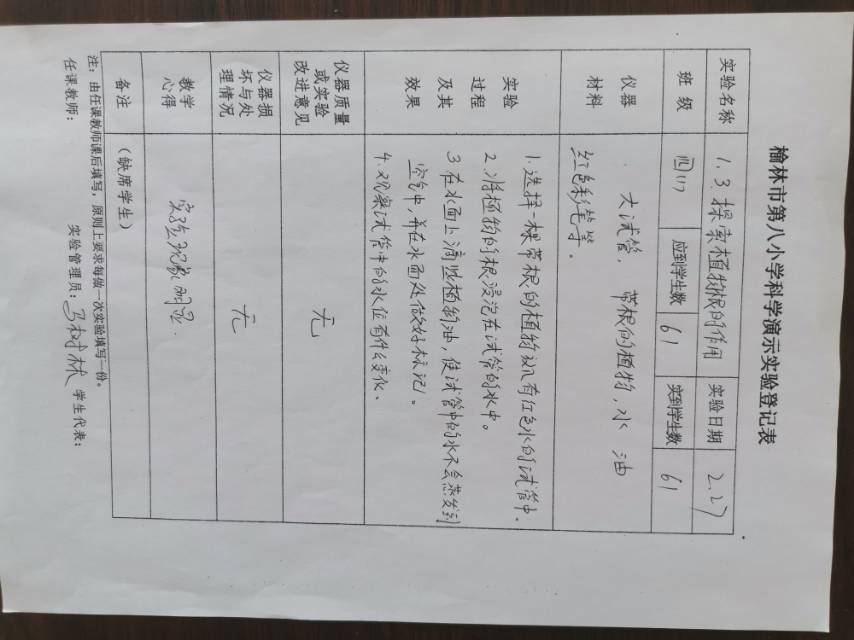 榆林市第八小学科学演示实验登记表
实验名称 1.3 探索植物根的作用 实验日期 2.27
班级 四(1) 应到学生数 61 实到学生数 61
仪器 大试管、带根的植物,水 油
材料 红色彩笔等。
实验 1.选择一棵带根的植物 有红色水的试管中.
过程 2.将植物的根浸泡在试管的水中。
及其 3 在水面上滴些植物油,使试管中的水不会蒸发到
空气中,并在水面处做好标记。
效果 4.观察试管中的水位有什么变化.
仪器质量
或实验 无
改进意见
仪器损
坏与处 无
理情况
教学 实验现象明显.
心得
备注 (缺席学生)
注:由任课教师课后填写,原则上要求每做一次实验填写一份。
任课教师: 实验管理员:马树林 学生代表: